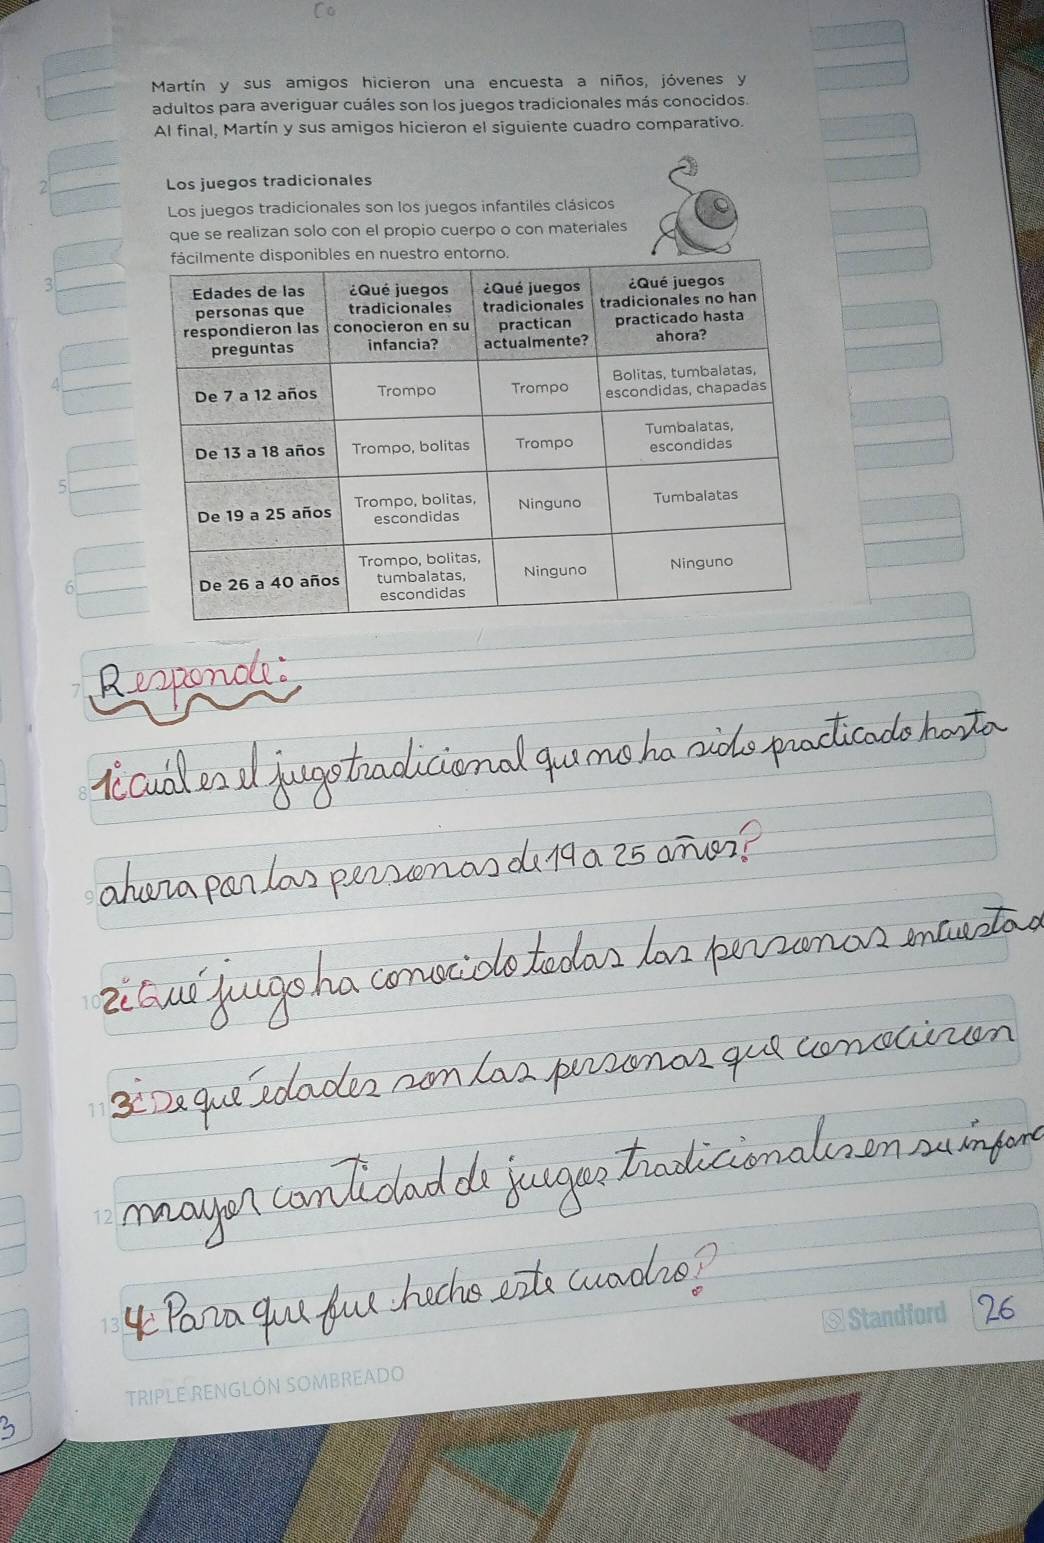 Co
Martín y sus amigos hicieron una encuesta a niños, jóvenes y
adultos para averiguar cuáles son los juegos tradicionales más conocidos.
Al final, Martín y sus amigos hicieron el siguiente cuadro comparativo.
Los juegos tradicionales
Los juegos tradicionales son los juegos infantiles clásicos
que se realizan solo con el propio cuerpo o con materiales
fácilmente disponibles en nuestro entorno.
Edades de las personas que respondieron las preguntas
¿Qué juegos tradicionales conocieron en su infancia?
¿Qué juegos tradicionales practican actualmente?
¿Qué juegos tradicionales no han practicado hasta ahora?
De 7 a 12 años
Trompo
Trompo
Bolitas, tumbalatas, escondidas, chapadas
De 13 a 18 años
Trompo, bolitas
Trompo
Tumbalatas, escondidas
De 19 a 25 años
Trompo, bolitas, escondidas
Ninguno
Tumbalatas
De 26 a 40 años
Trompo, bolitas, tumbalatas, escondidas
Ninguno
Ninguno
Responde:
1¿cuál es el juego tradicional que no ha sido practicado hasta
ahora por las personas de 19 a 25 años?
2¿Qué jugo ha conocido todas las personas encuestad
3¿De qué edades son las personas que conocieron
mayor cantidad de juegos tradicionales en su infanc
4¿Para que fue hecho este cuadro?
Standford 26
TRIPLE RENGLÓN SOMBREADO
1
2
3
4
5
6
7
8
9
10
11
12
13
3